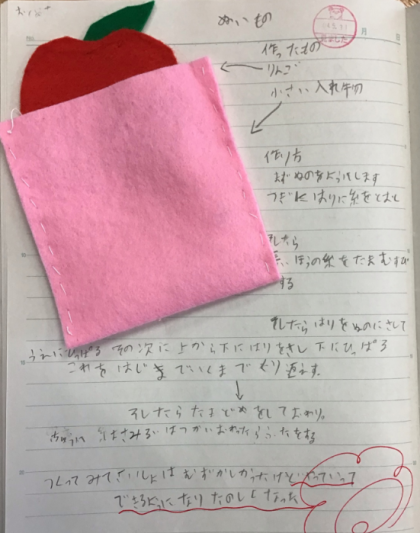 ぬいもの
月 日
作ったもの
りんご
小さい入れ物
作り方
まずぬのをよういします
つぎに はりに糸をとおし
したら
ほうの糸をたまむすび
する
したらはりをぬのにさして
うえにひっぱる その次に上から下にはりをさし 下にひっぱる
これをはじまでいくまでくり返す。
そしたらたまどめをしておわり。
はさみ はつかいおわったらふたをする
つくってみてさいしょはむずかしかったけどやっていって
できるようになりたのしくなった